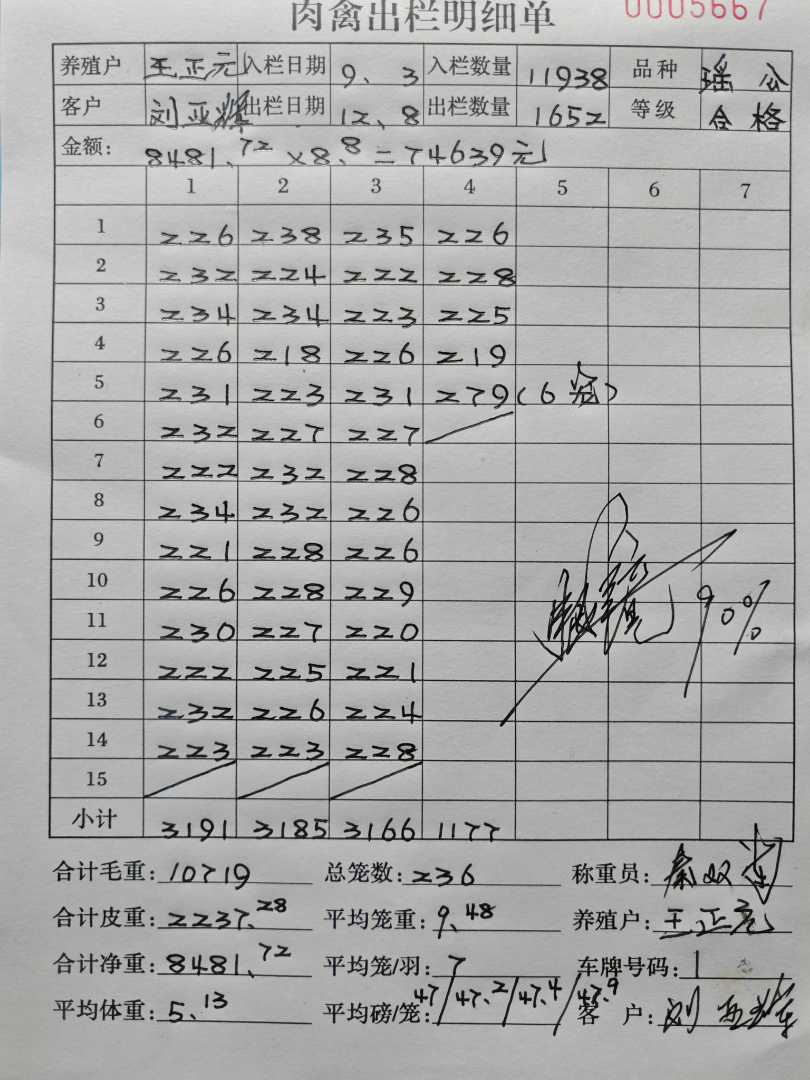 肉禽出栏明细单 0005667
养殖户 王正元 入栏日期 9、3 入栏数量 11938 品种 瑶公
客户 刘亚辉 出栏日期 12、8 出栏数量 1652 等级 合格
金额: 8481.72×8.8=74639元
1 2 3 4 5 6 7
1 226 238 235 226
2 232 224 222 228
3 234 234 223 225
4 226 218 226 219
5 231 223 231 279(6笼)
6 232 227 227
7 222 232 228
8 234 232 226
9 221 228 226
10 226 228 229
11 230 227 220 90%
12 222 225 221
13 232 226 224
14 223 223 228
15
小计 3191 3185 3166 1177
合计毛重: 10719 总笼数: 236 称重员:
合计皮重: 2237.28 平均笼重: 9.48 养殖户: 王正元
合计净重: 8481.72 平均笼/羽: 7 车牌号码: 1
平均体重: 5.13 平均磅/笼: 47/47.2/47.4/47.9 客户: 刘亚辉